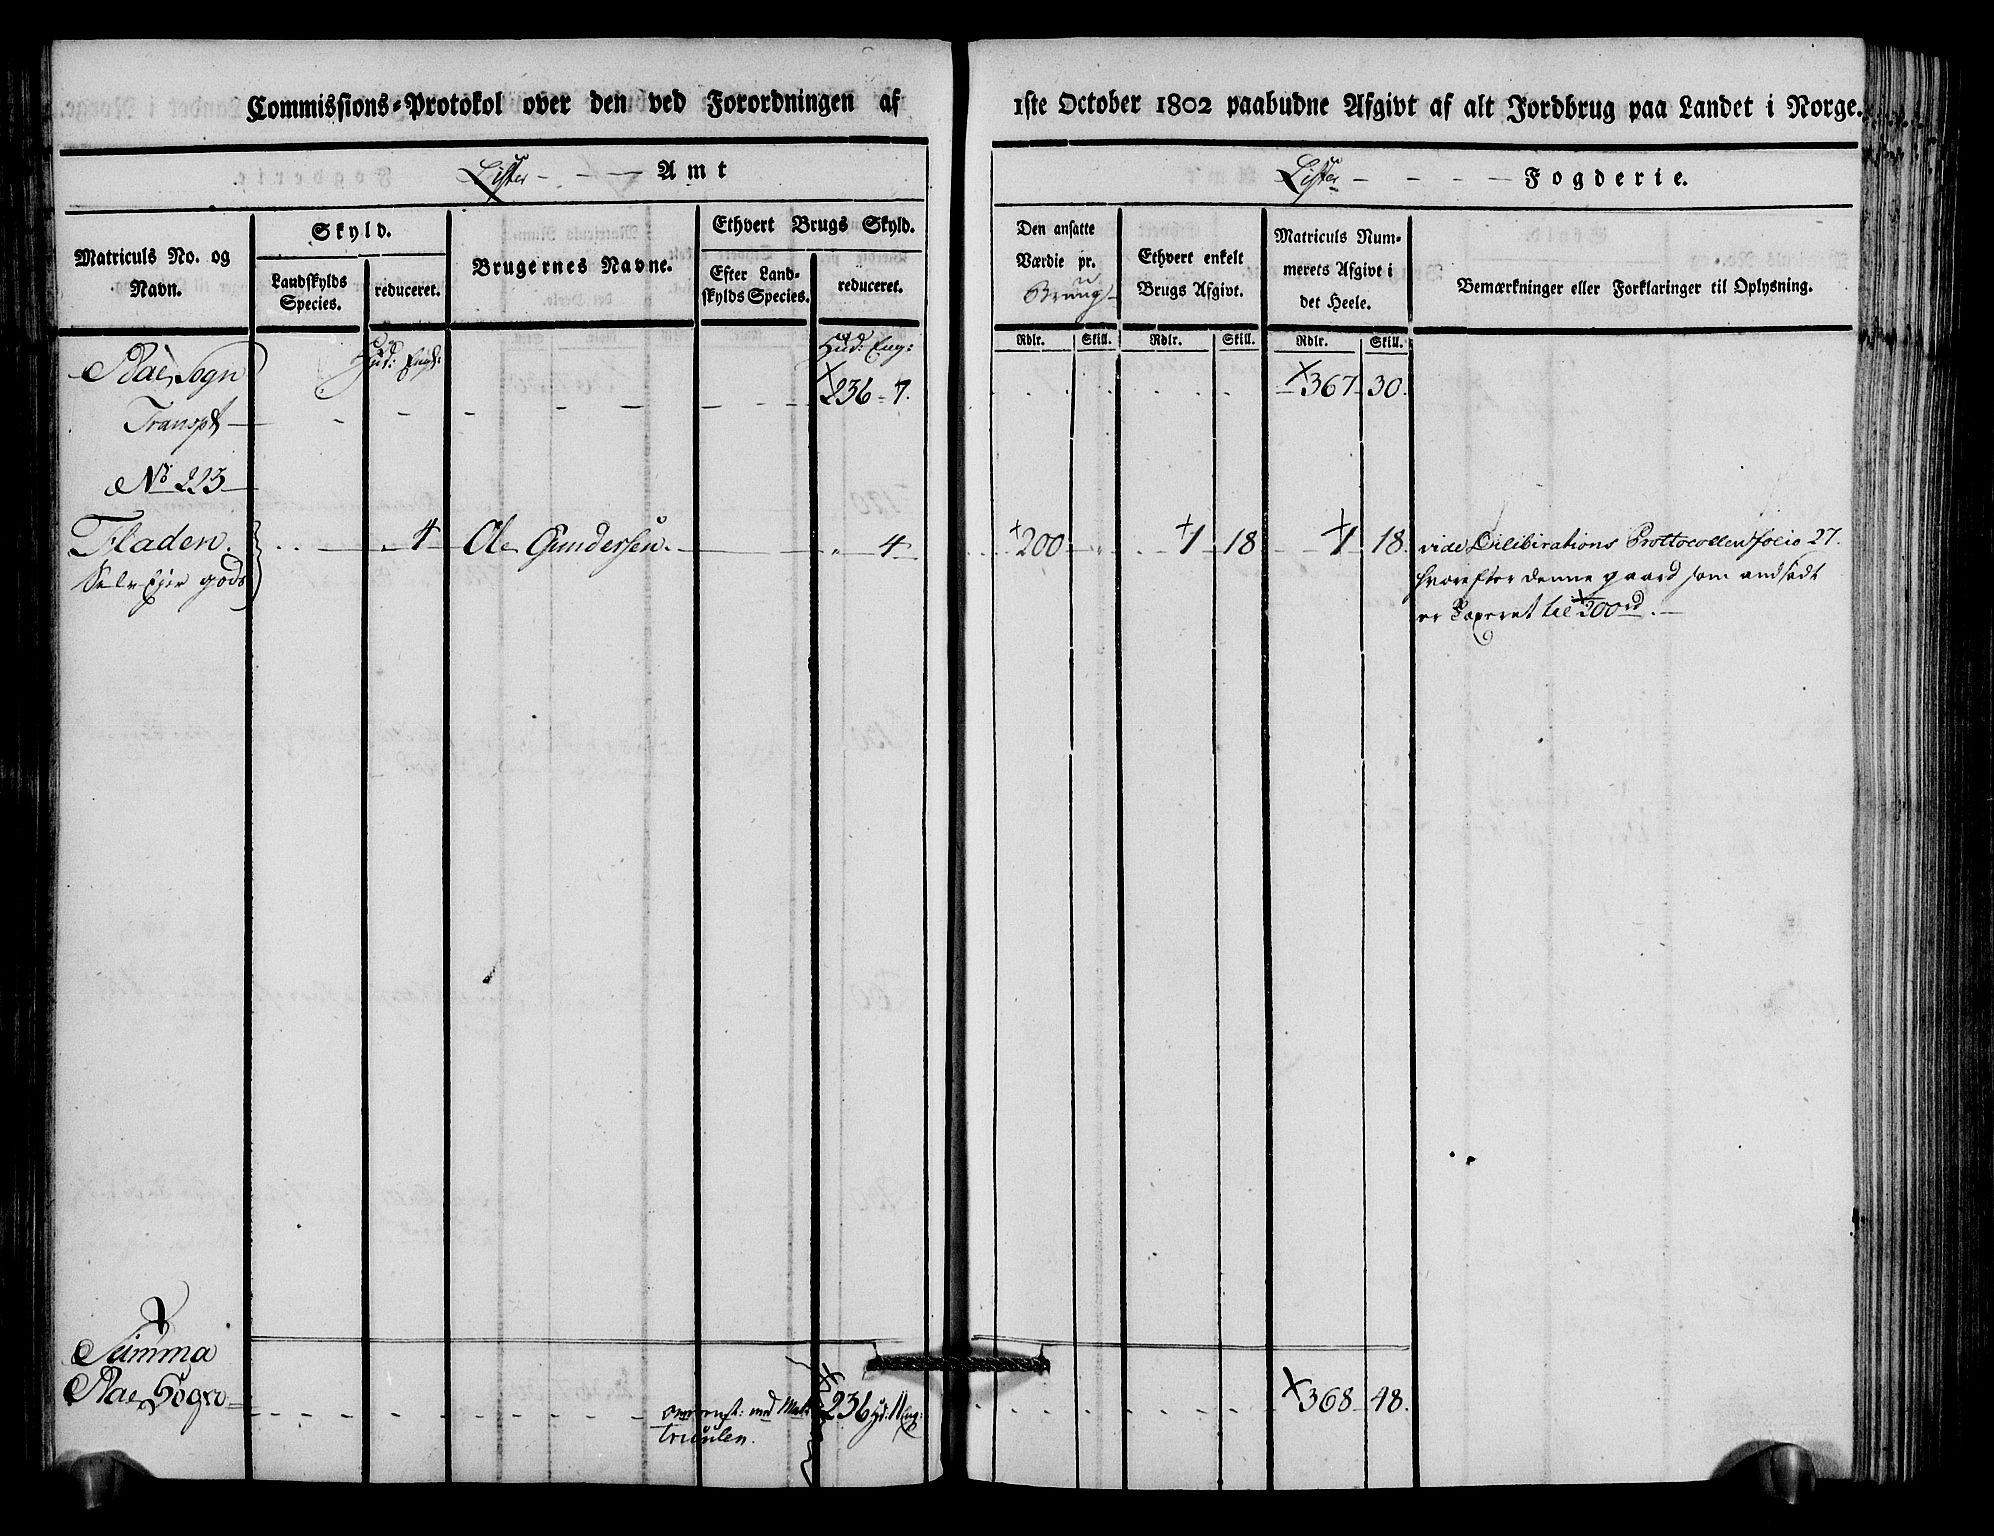 Commissions-Protokol over den ved Forordningen af 1ste October 1802 paabudne Afgivt af alt Jordbrug paa Landet i Norge.
Lister - - - Amt
Lister - - - - Fogderie.
Matriculs No. og Navn.
Skyld.
Landskylds Species.
reduceret.
Brugernes Navne.
Ethvert Brugs Skyld.
Efter Landskylds Species.
reduceret.
Den ansatte Værdie pr. Brug
Ethvert enkelt Brugs Afgivt.
Matriculs Nummerets Afgivt i det Heele.
Bemærkninger eller Forklaringer til Oplysning.
Rdlr. Skill. Rdlr. Skill. Rdlr. Skill.
Sogn Hud: Eng: Hud: Eng:
Transpt 236 - 7. 367 30.
No 223
Fladen. 4 Ole Gundersen. 4 200 1 18 1 18. vide Delibirations Prottocollen folio 27.
Selv Ejer gods hvorefter denne gaard som andsadt
er Taxeret til 200 rd.
Summa
Sogn 236 hd: 11 Eng: 368 48.
overenst: med Matriculen.